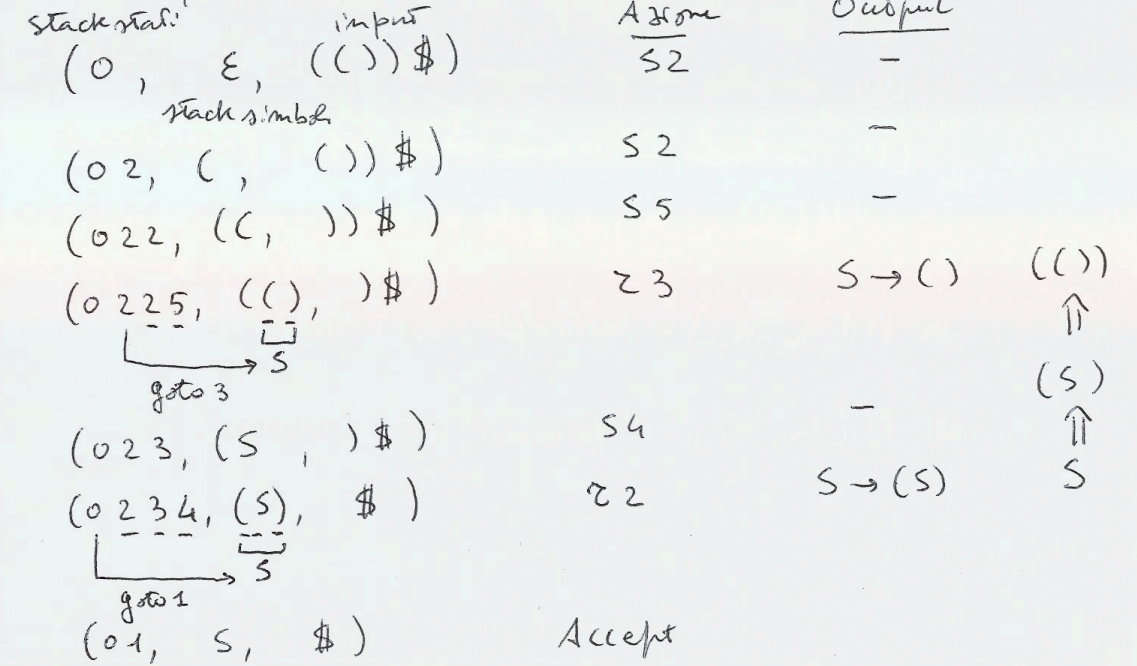 stack stati input Azione Output
(0, ε, (())$) S2 –
stack simboli
(02, (, ())$) S2 –
(022, ((, ))$) S5 –
(0225, ((), )$) r3 S → () (())
S ⇑
goto 3 (S)
(023, (S, )$) S4 – ⇑
(0234, (S), $) r2 S → (S) S
S
goto 1
(01, S, $) Accept